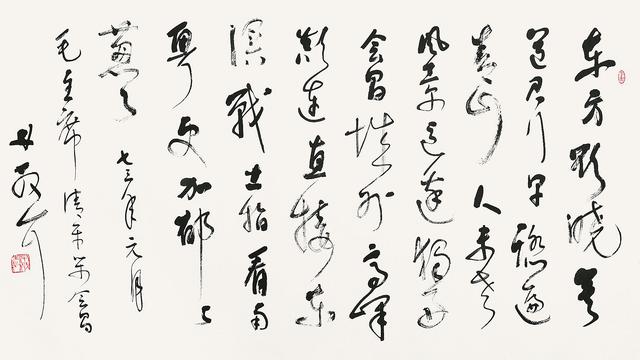 东方欲晓莫
道君行早踏遍
青山人未老
风景这边独好
会昌城外高峰
颠连直接东
溟戰士指看南
粤更加郁々
葱々 七三年元月
毛主席清平乐会昌